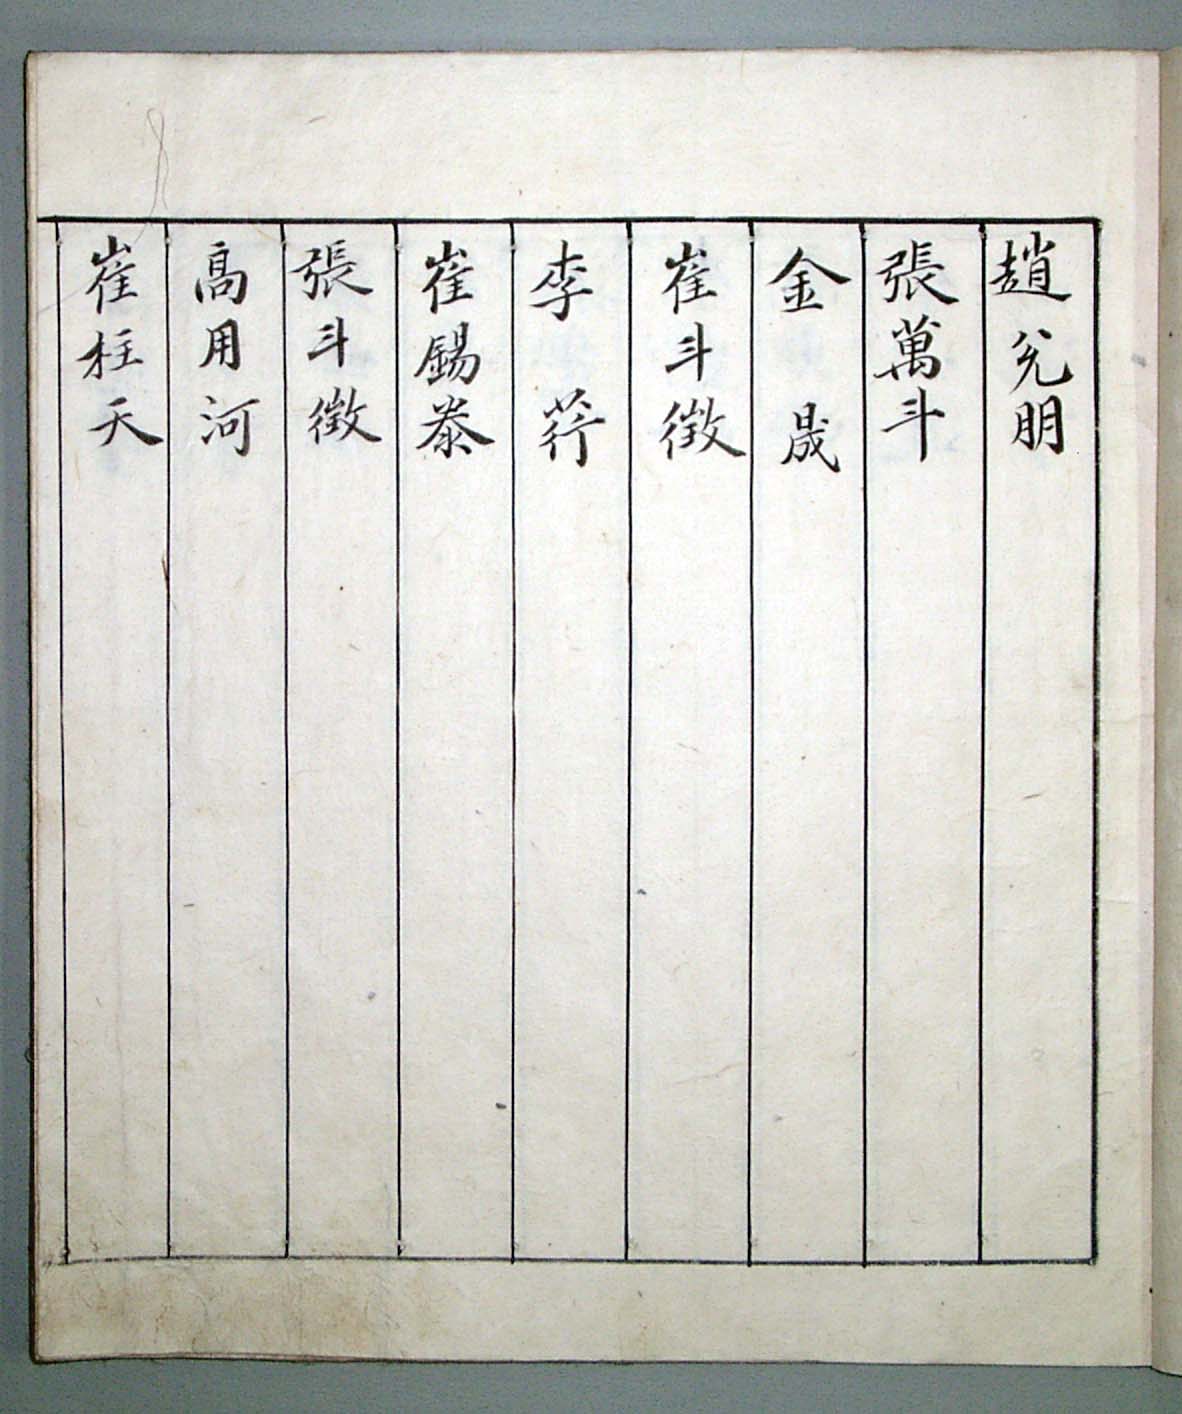 趙兌明
張萬斗
金晟
崔斗徴
李荇
崔錫泰
張斗徴
高用河
崔柱天